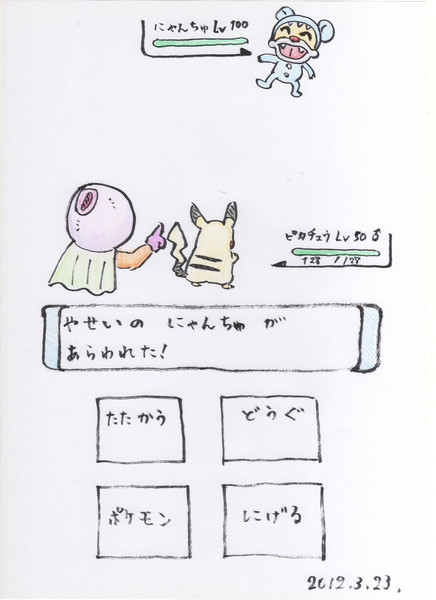 にゃんちゅ Lv 100
ピカチュウ Lv 50 ♂
128 / 128
やせいの にゃんちゅ が
あらわれた!
たたかう
どうぐ
ポケモン
にげる
2012.3.23.